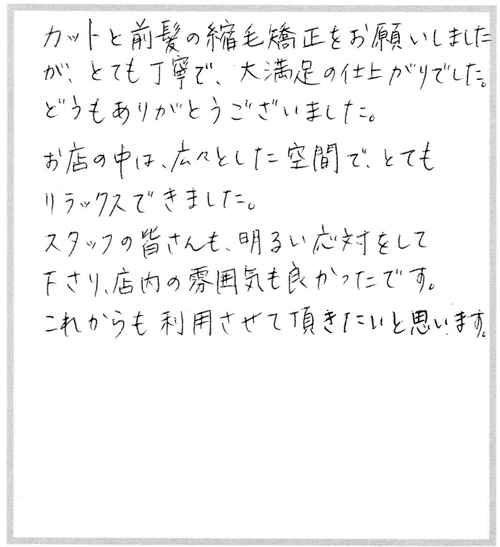 カットと前髪の縮毛矯正をお願いしました
が、とても丁寧で、大満足の仕上がりでした。
どうもありがとうございました。
お店の中は、広々とした空間で、とても
リラックスできました。
スタッフの皆さんも、明るい応対をして
下さり、店内の雰囲気も良かったです。
これからも利用させて頂きたいと思います。